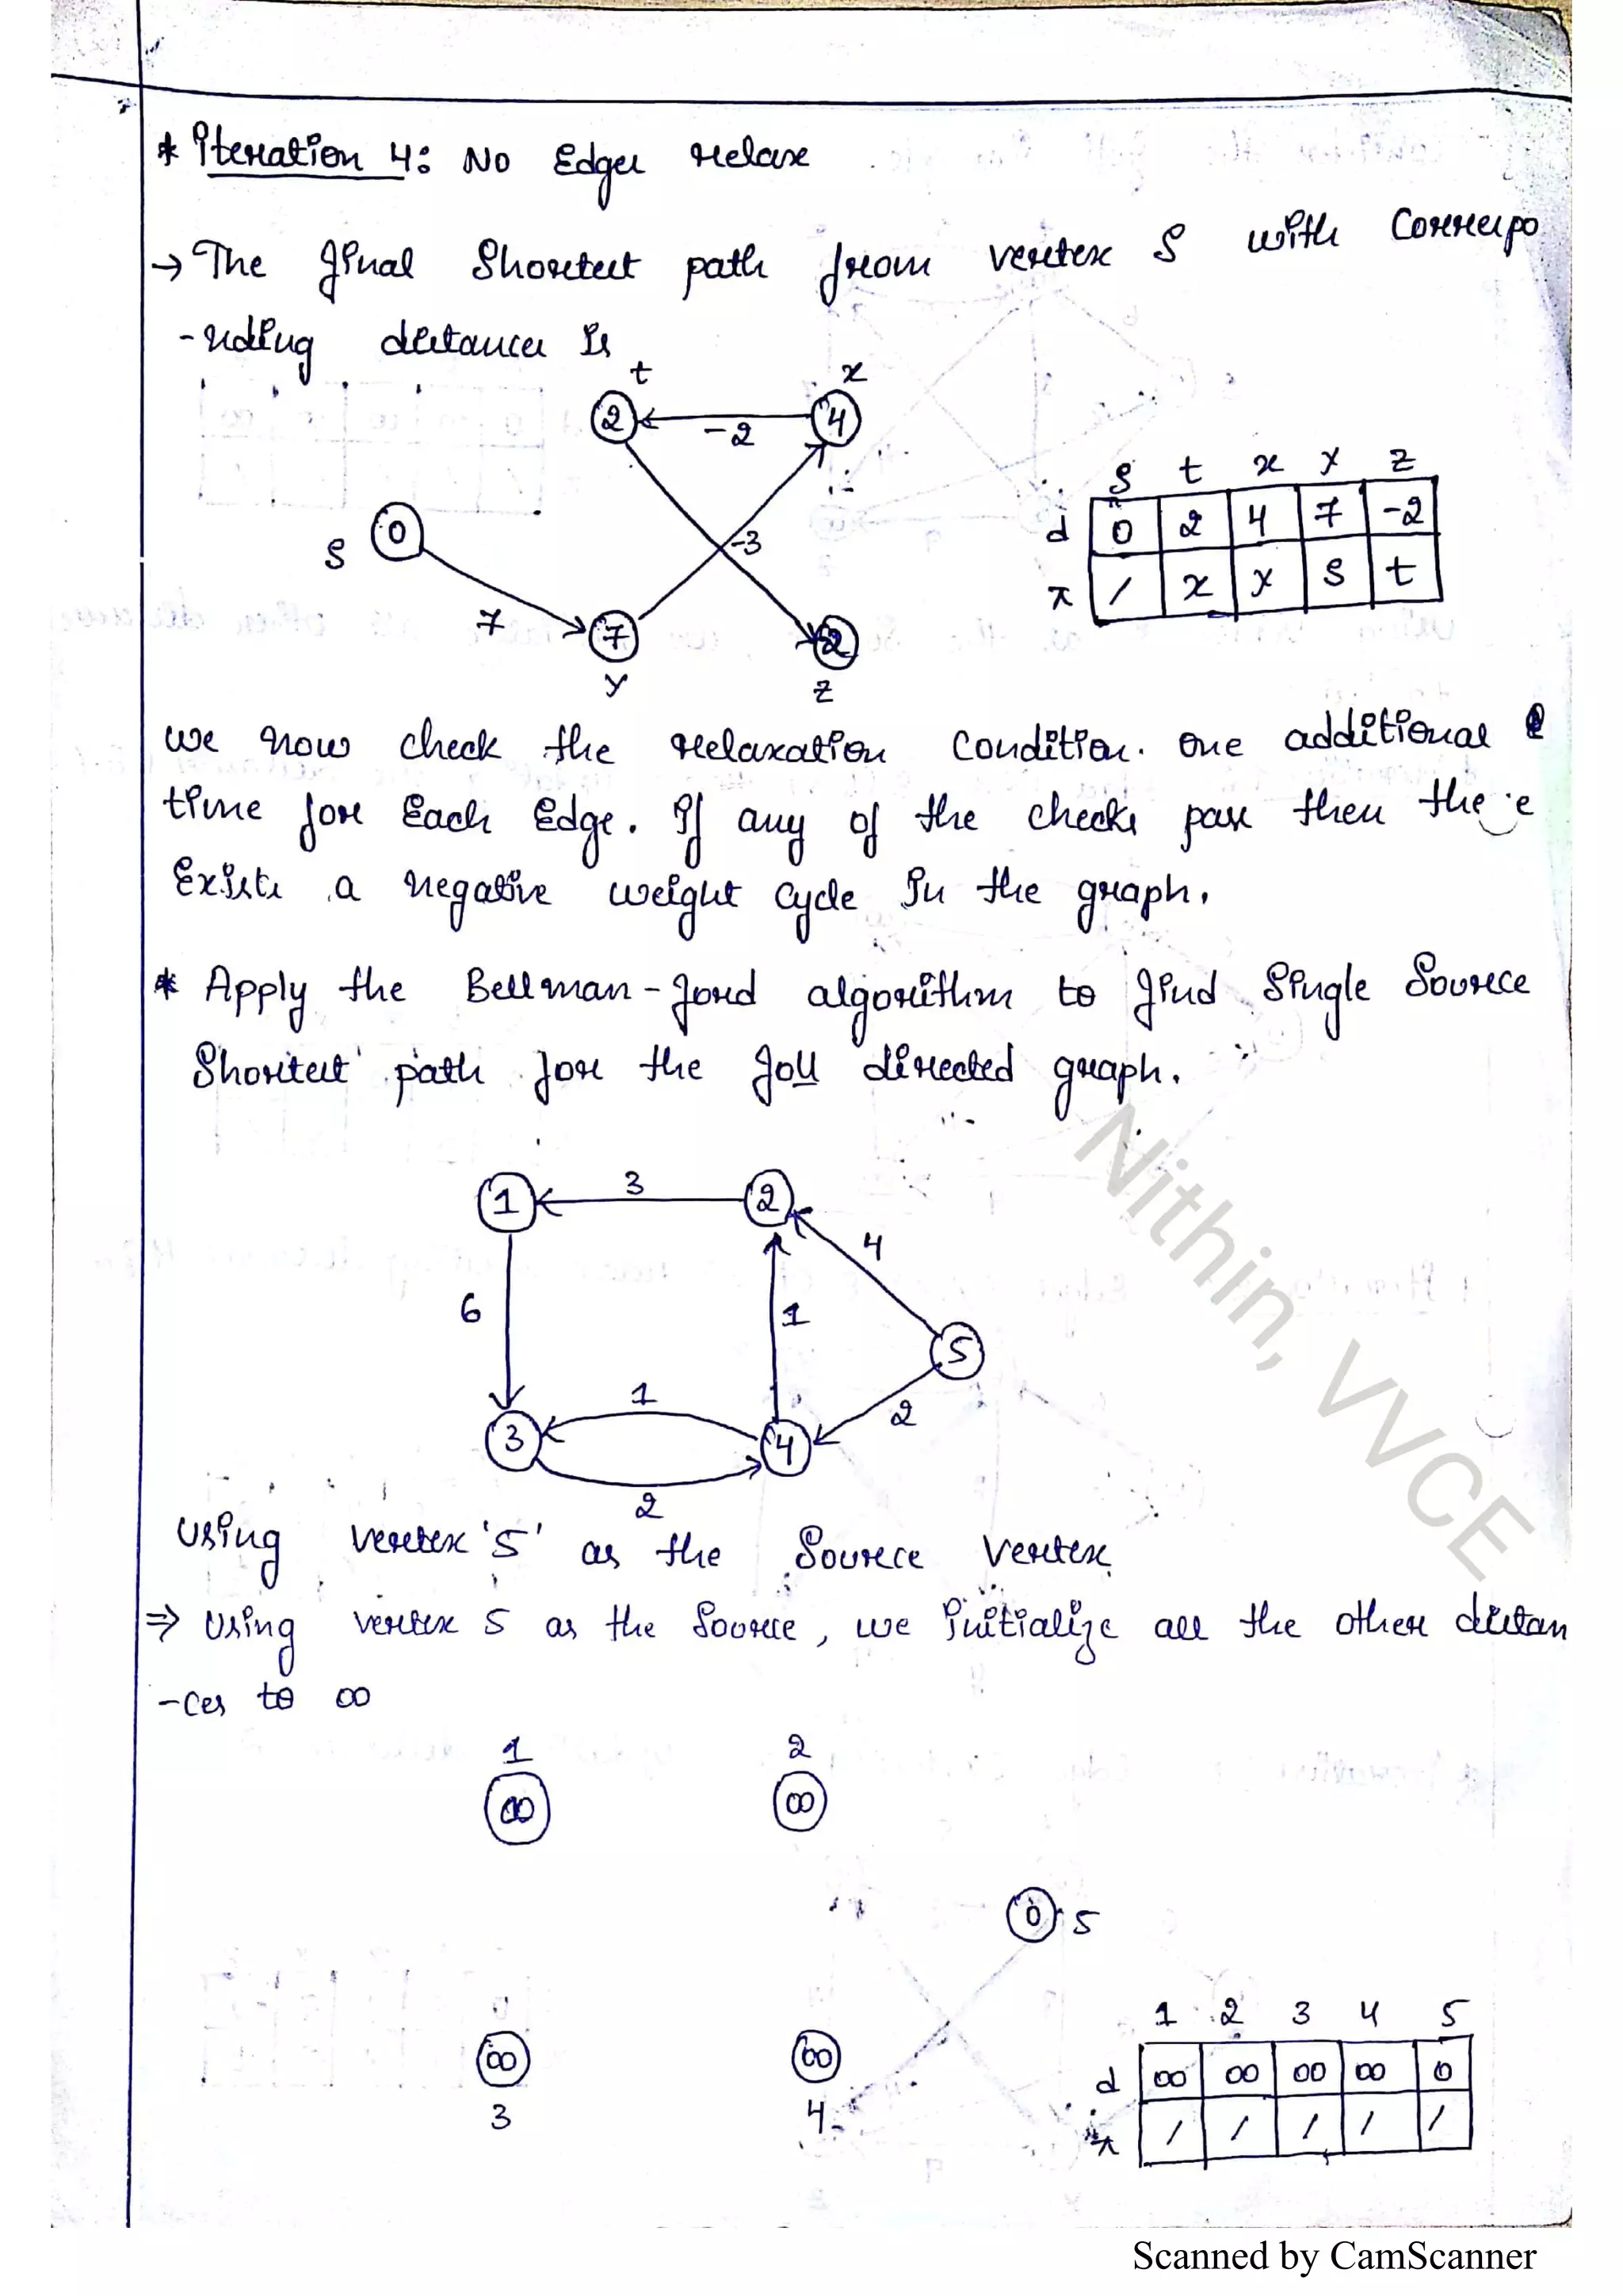 * Iteration 4: No Edges relax
→ The final Shortest path from vertex S with Correspo
-nding distances is
t x
2 4
-2
S 0
-3
7
7
y z
S t x y z
d 0 2 4 7 -2
π / x y S t
we now check the relaxation Condition. one additional
time for Each Edge. If any of the checks pass then there
Exists a negative weight cycle in the graph.
* Apply the Bellman-ford algorithm to find Single Source
Shortest path for the foll directed graph.
1 3 2
4
6 1
5
1
2
3 4
2
Using vertex '5' as the Source Vertex
⇒ Using vertex 5 as the Source, we initialize all the other distan
-ces to ∞
1 2
∞ ∞
0 5
∞ ∞
3 4
1 2 3 4 5
d ∞ ∞ ∞ ∞ 0
π / / / / /
Nithin, VVCE
Scanned by CamScanner